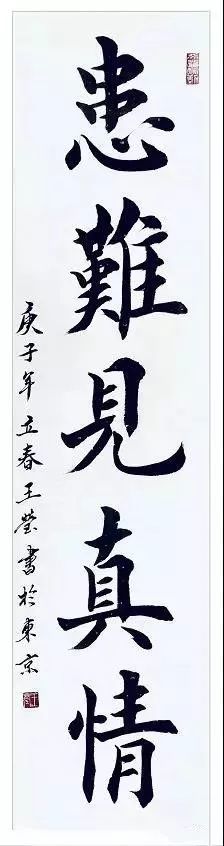 患難見真情
庚子年立春王莹書於東京